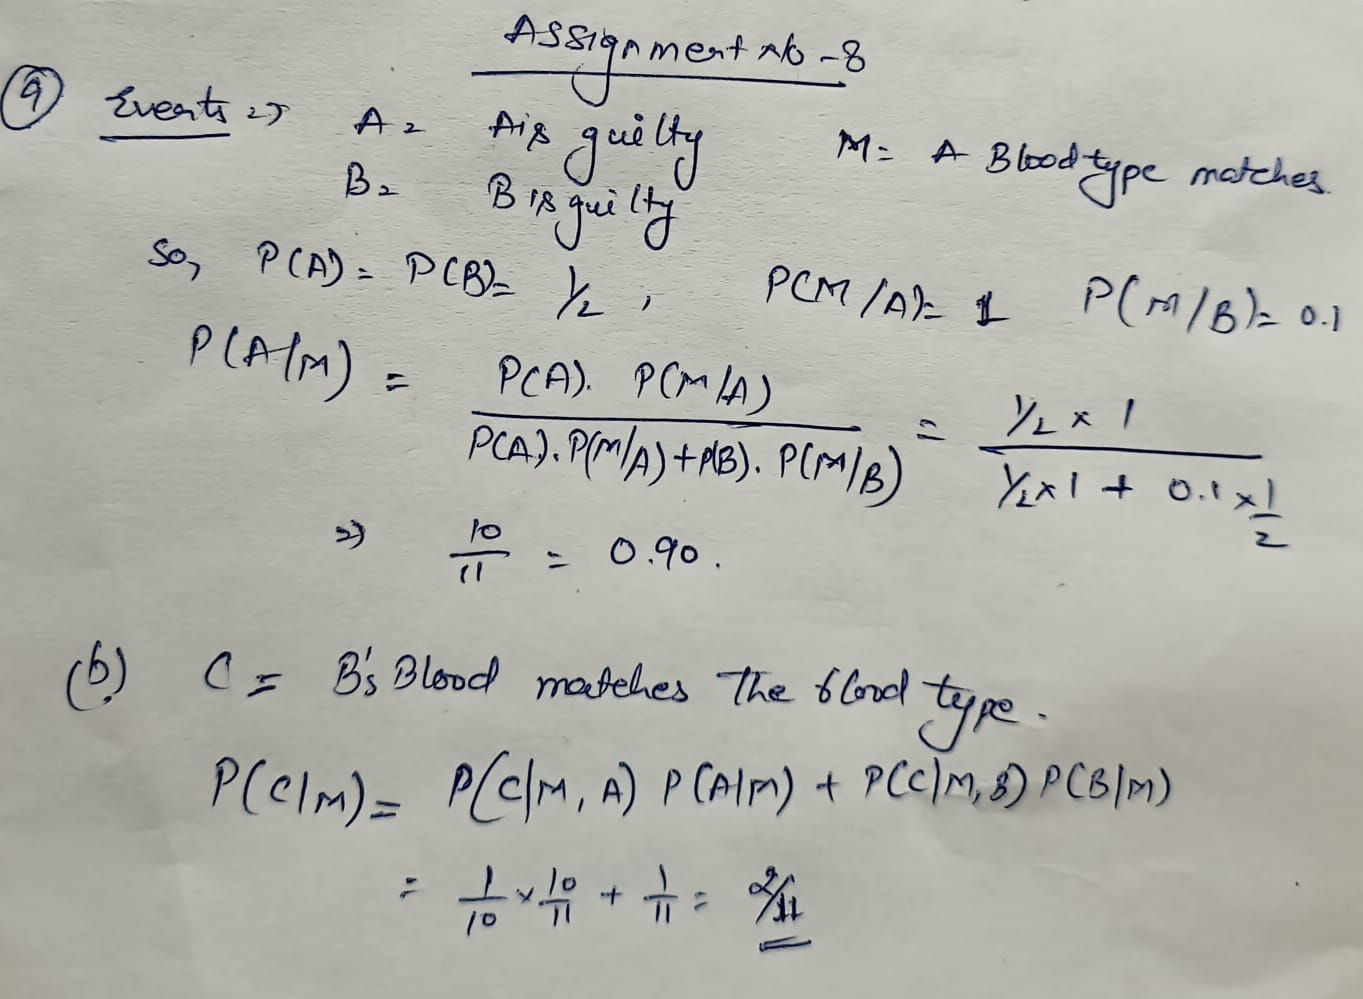 Assignment No - 8
(a) Events => A = A is guilty M = A Blood type matches.
B = B is guilty
So, P(A) = P(B) = 1/2, P(M/A) = 1 P(M/B) = 0.1
P(A/M) = P(A). P(M/A) / P(A).P(M/A) + P(B). P(M/B) = 1/2 x 1 / 1/2 x 1 + 0.1 x 1/2
=> 10/11 = 0.90.
(b) C = B's Blood matches The blood type.
P(C|M) = P(C|M, A) P(A|M) + P(C|M, B) P(B|M)
= 1/10 x 10/11 + 1/11 = 2/11